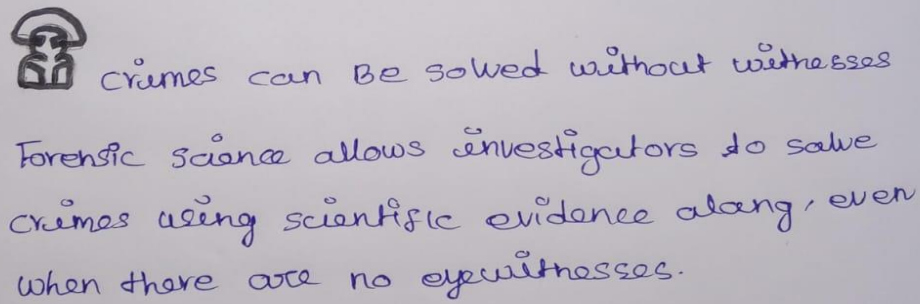 Crimes can Be solved without witnesses
Forensic science allows investigators to solve
crimes using scientific evidence alang, even
when there are no eyewitnesses.